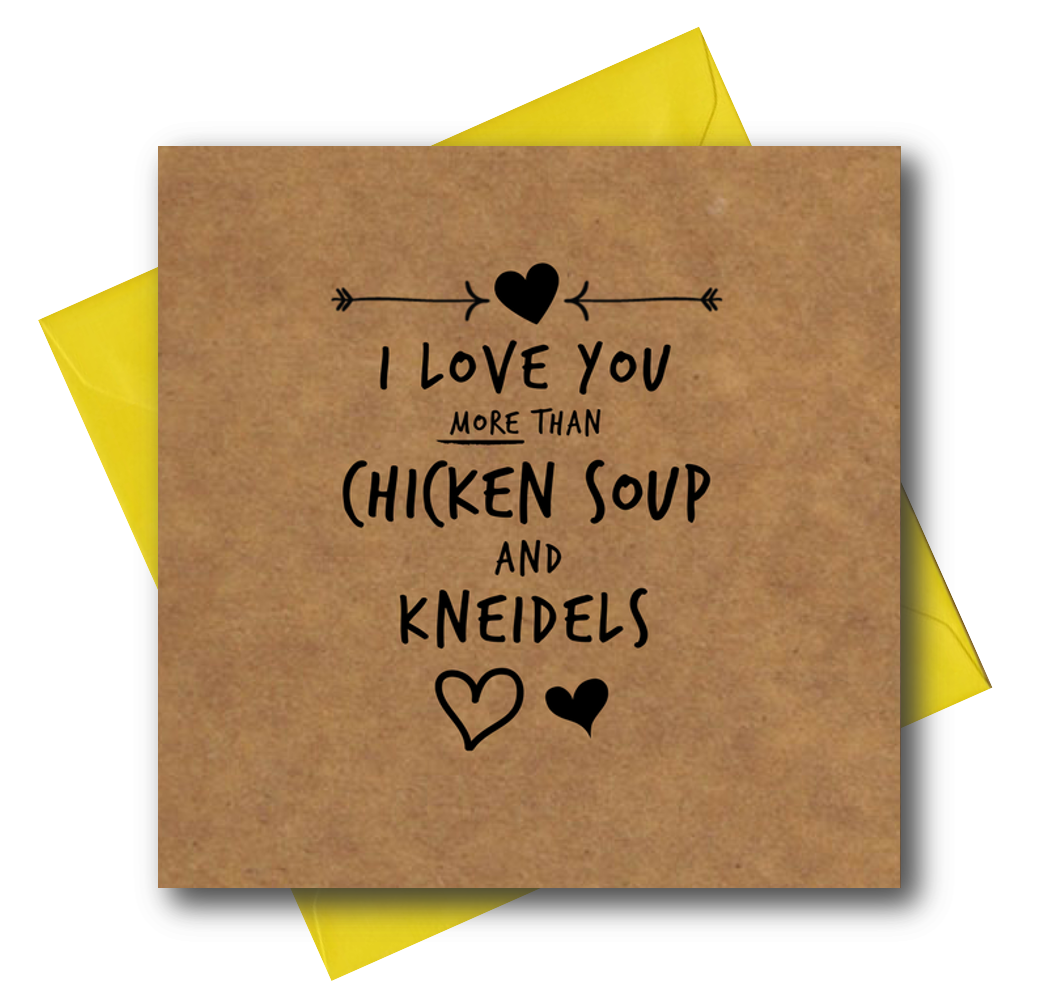 I LOVE YOU
MORE THAN
CHICKEN SOUP
AND
KNEIDELS